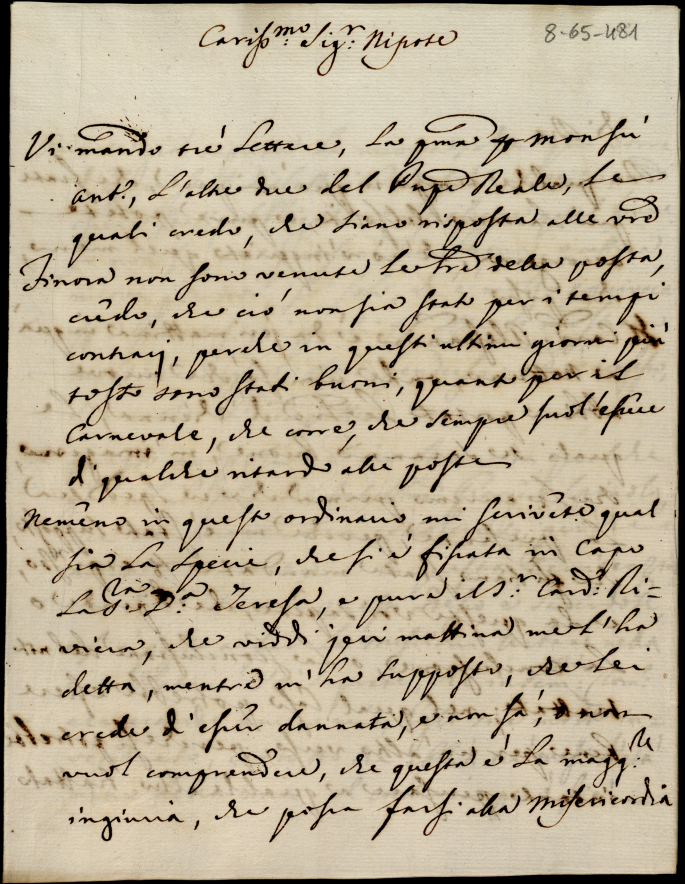 8-65-481
Cariss.mo Sig.r Nipote
Vi mando trè Lettere, La pma p monsù
Ant.o, L'altre due del Reale, Le
quali credo, che siano risposta alle vre
Finora non sono venute Le tre della posta,
credo, che ciò non sia stato per i tempi
contrarj, perche in questi ultimi giorni più
tosto sono stati buoni, quanto per il
Carnevale, che corre, che sempre suol'essere
di qualche ritardo alle poste
Nemeno in questo ordinario mi scrivete qual
sia La specie, che si è fissata in Capo
La S.ra D.a Teresa, e pure il S.r Card.e Ri=
viera, che viddi jeri mattina me l'ha
detta, mentre m'ha supposto, che Lei
crede d'esser dannata, e non sà, o non
vuol comprendere, che questa è La magg.re
ingiuria, che possa farsi alla Misericordia